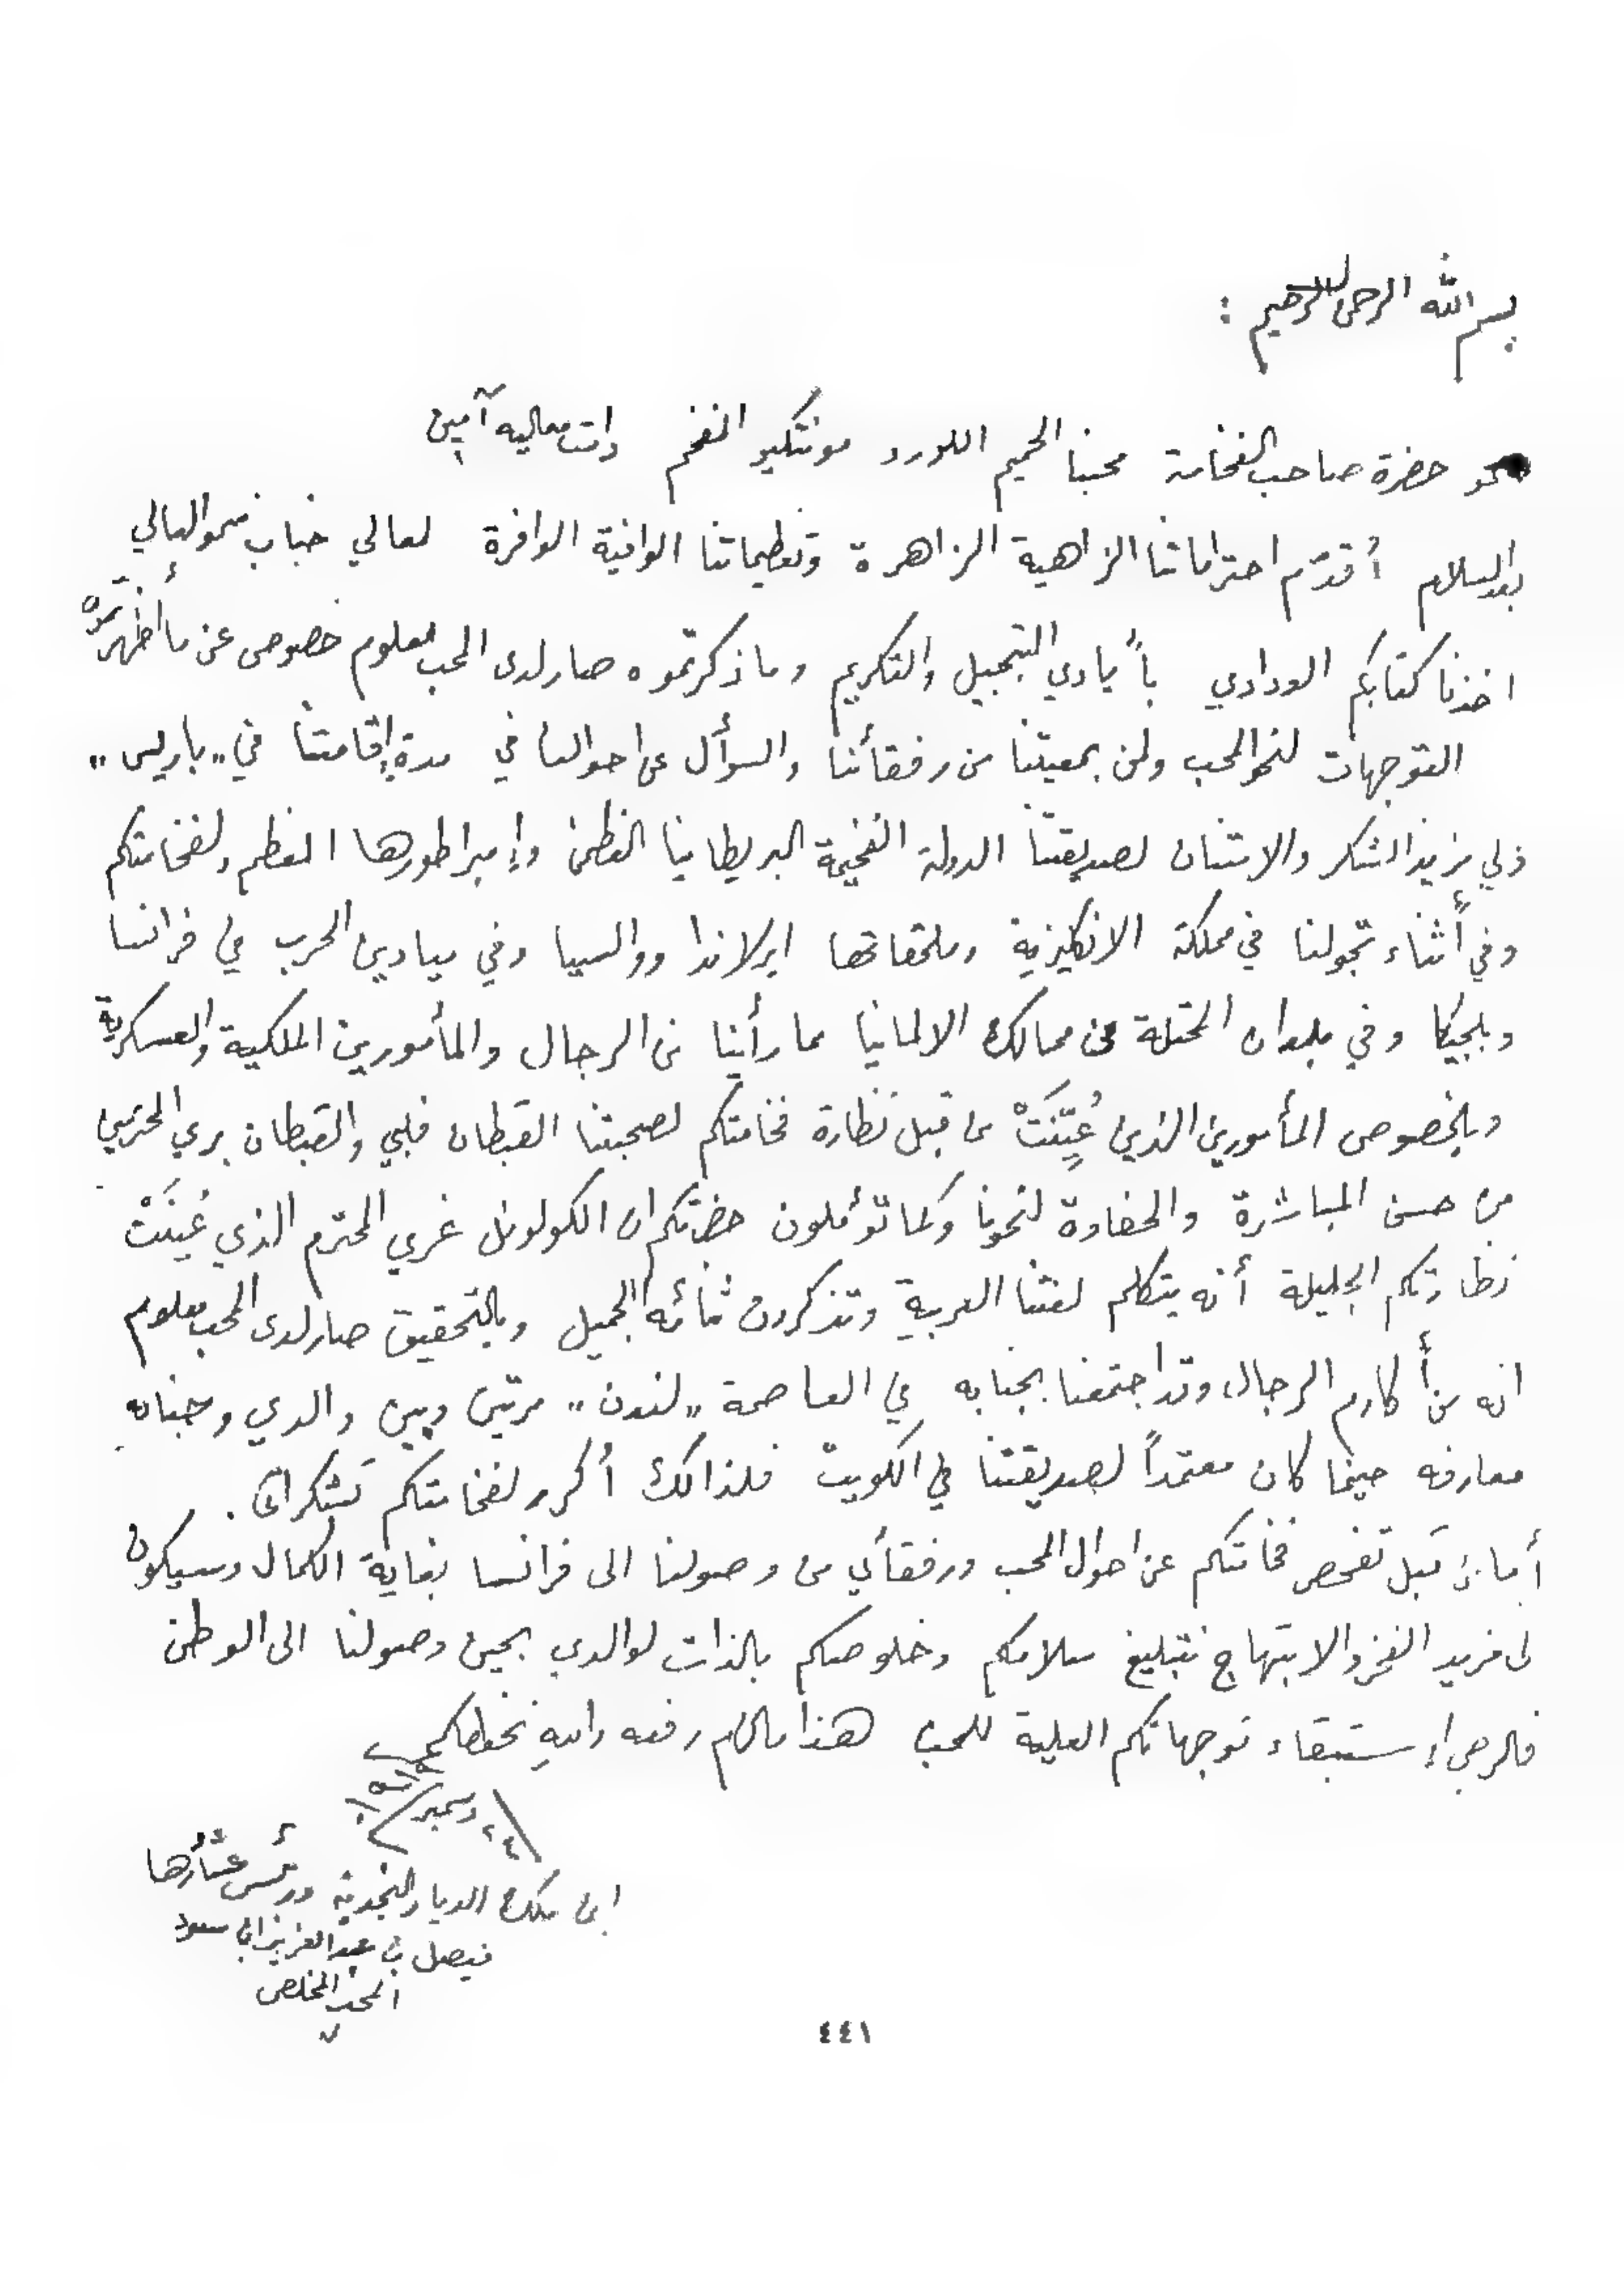 بسم الله الرحمن الرحيم :
نحو حضرة صاحب الفخامة محبنا الحميم اللورد مونتكيو المفخم دامت معاليه آمين
بعد السلام أقدّم احتراماتنا الزاهية الزاهرة وتعظيماتنا الوافية الوافرة لعالي جناب سمو العالي
اخذنا كتابكم الودادي بأيادي التبجيل والتكريم وما ذكرتموه صار لدى المحب معلوم خصوصى عن ما أظهرتموه
التوجهات لنحو المحب ولمن بمعيتنا من رفقائنا والسؤأل عن احوالنا في مدة إقامتنا في „باريس„
فلي مزيد الشكر والامتنان لصديقتنا الدولة الفخيمة البريطانيا العظمى وإمبراطورها المعظم ولفخامتكم
وفي أثناء تجولنا في مملكة الانكليزية وملحقاتها ايرلاندا ووالسيا وفي ميادين الحرب في فرانسا
وبلجيكا وفي بلدان المحتلة من ممالك الالمانيا مما رأينا من الرجال والمأمورين الملكية والعسكرية
وبلخصوص المأمورين الذين عُيّنَتْ من قبل نظارة فخامتكم لصحبتنا القبطان فلبي والقبطان بري المحترمين
من حسن المباشرة والحفاوة لنحونا وكما تؤملون حضرتكم ان الكولونل غري المحترم الذي عُينَتْ
نظارتكم الجليلة أنه يتكلم لغتنا العربية وتذكرون ثنائه الجميل وبالتحقيق صار لدى المحب معلوم
انه من أكارم الرجال وقد اجتمعنا بجنابه في العاصمة „لندن„ مرتين وبين والدي وجنابه
معارفه حينما كان معتمداً لصديقتنا في الكويت فلذالك أكرر لفخامتكم تشكراتي .
أما من قبل تفحص فخامتكم عن احوال المحب ورفقائي من وصولنا الى فرانسا بغاية الكمال وسيكون
لى مزيد الفخر والابتهاج بتبليغ سلامكم وخلوصكم بالذات لوالدي بحين وصولنا الى الوطن
فالرجى إستبقاء توجهاتكم العلية للمحب هذا مالزم رفعه والله يحفظكم
٢٤ دسمبر ١٩١٩
ابن ملك الديار النجدية ورئيس عشائرها
فيصل بن عبدالعزيز ابن سعود
المحب المخلص
٤٤١